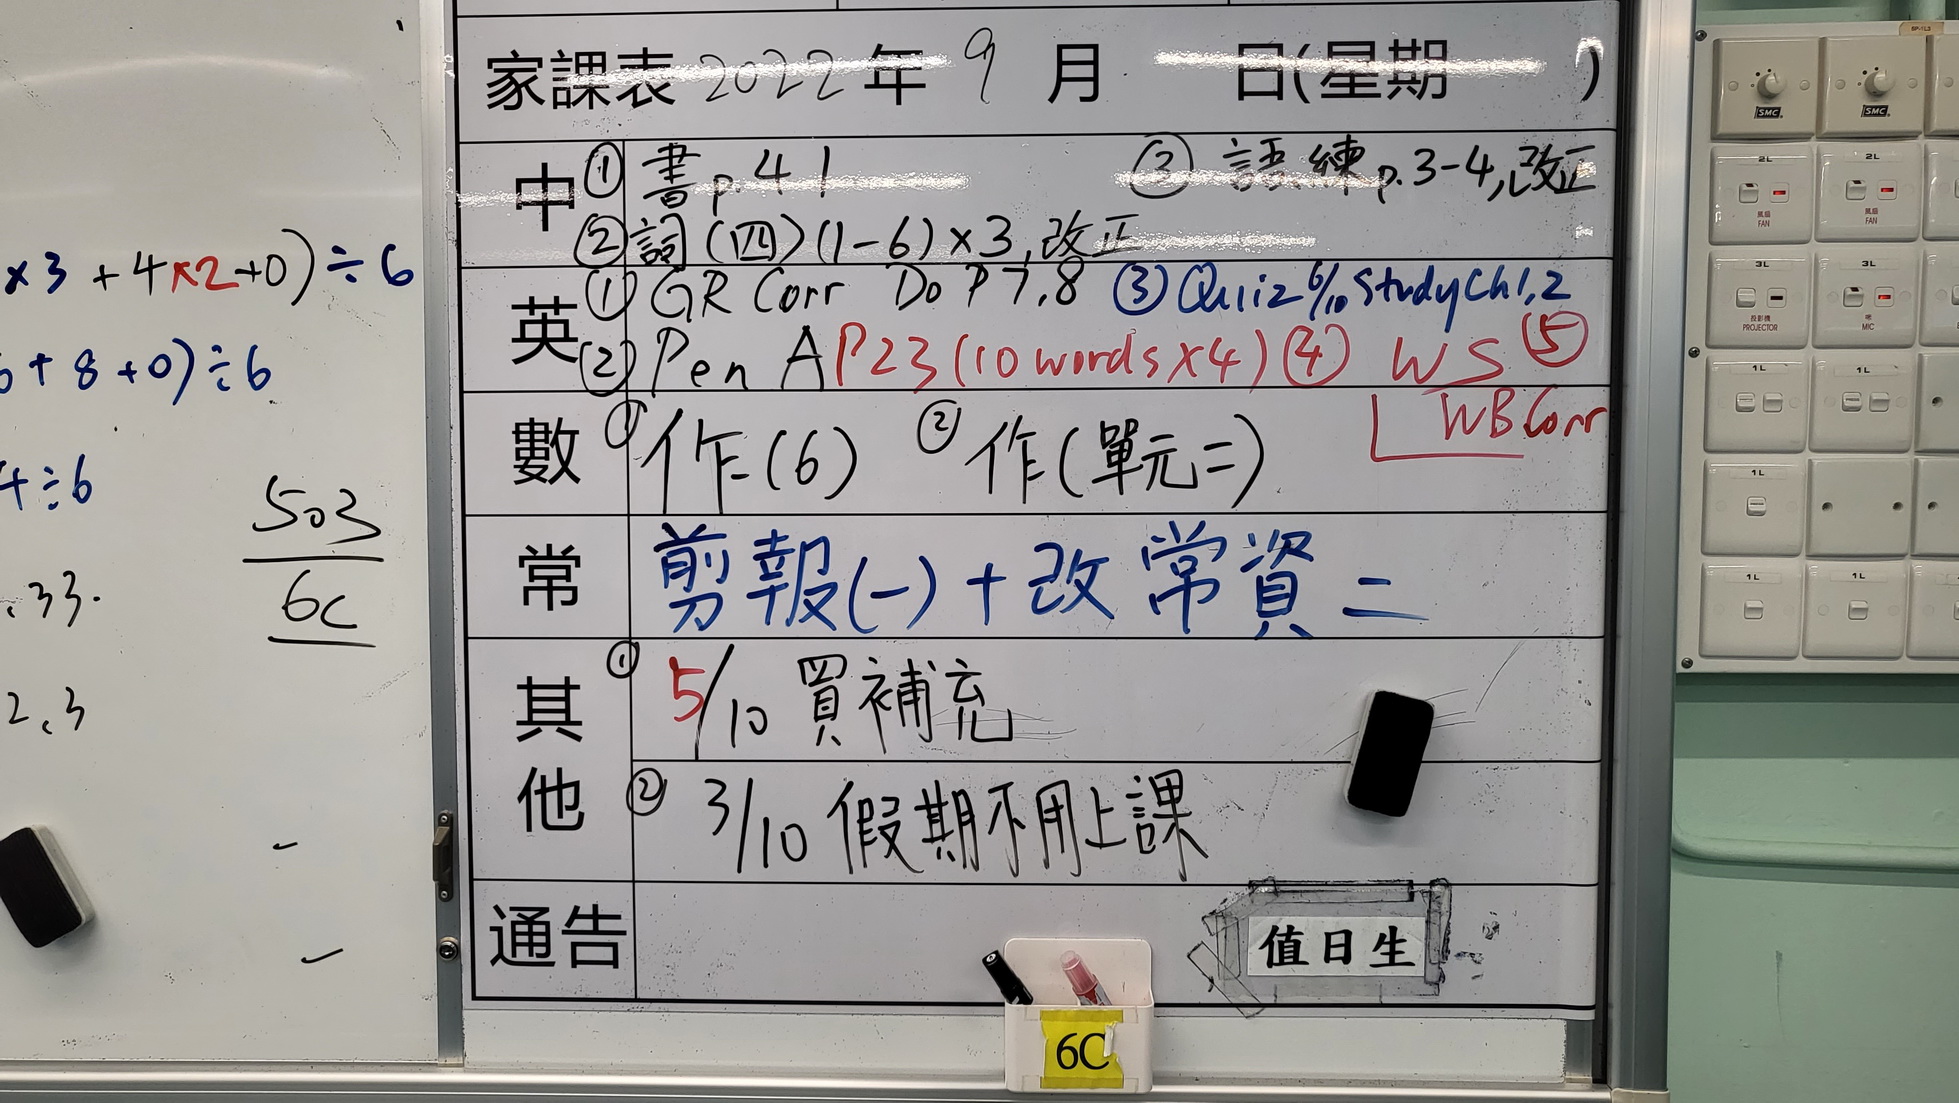 ×3 + 4×2 +0) ÷ 6
+ 8 +0) ÷ 6
4 ÷ 6
503
6C
.33.
2.3
家課表 2022 年 9 月 日(星期 )
中 ① 書 p.41 ③ 語練 p.3-4,改正
② 詞(四)(1-6)×3,改正
英 ① GR Corr Do P7,8 ③ Quiz 6/10 Study Ch1,2
② Pen A P23 (10 words ×4) ④ WS ⑤
WB Corr
數 ① 作(6) ② 作(單元二)
常 剪報(一) + 改 常資二
其他 ① 5/10 買補充
② 3/10 假期不用上課
通告
值日生
6C
SMC SMC
2L 2L
風扇 風扇
FAN FAN
3L 3L
投影機 咪
PROJECTOR MIC
1L 1L
1L
1L 1L